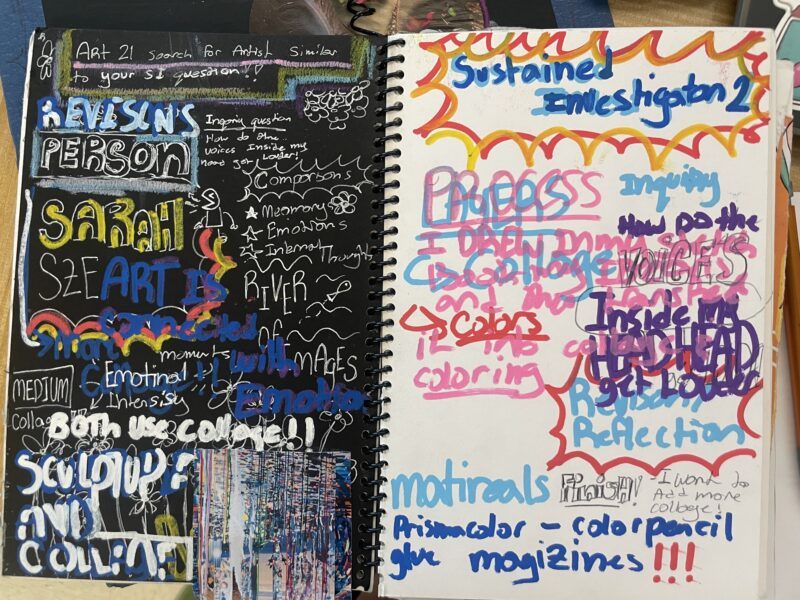 ART 21 search for Artist Similar
to your SI question!!
REVISON'S
PERSON
Inquiry question
How do the
voices Inside my
head get Louder!
Comparisons
Meomory
Emotions
Internal Thoughts
SARAH
SZE
ART IS
connected
with
Emotion
RIVER
OF
IMAGES
moments
Emotinal
Intensity
MEDIUM
collage
BOTH USE collage!!
SCULPTUPE
AND
COLLAGE
Sustained
Investigaton 2
PROCESSS
LAYERS
I DREW IN my
Collage
and
Colors
it into
coloring
Inquiry
How Do the
VOICES
Inside My
HEAD
get Louder
Reflection
matireals
FINISH!
- I want to
Add more
collage!
Prismacolor - colorpencil
glue magizines !!!